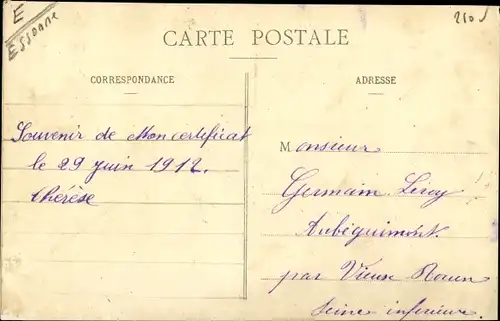 E
Essonne
CARTE POSTALE
CORRESPONDANCE
ADRESSE
Souvenir de Mon certificat
le 29 Juin 1912.
thérèse
Monsieur
Germain Leroy
Aubéguimont.
par Vieux Rouen
Seine inférieure.